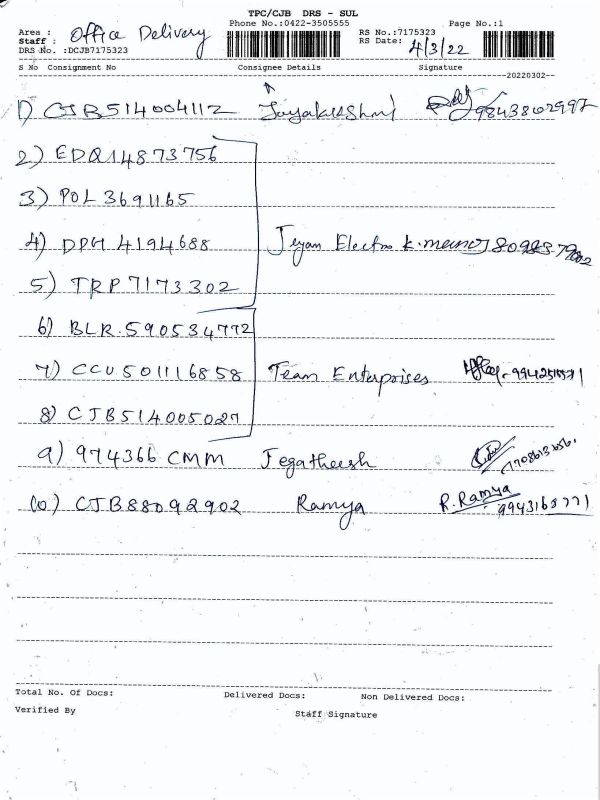 TPC/CJB DRS - SUL
Phone No.:0422-3505555 Page No.:1
Area : Office Delivery RS No.:7175323
Staff : RS Date: 4/3/22
DRS No. :DCJB7175323
S No Consignment No Consignee Details Signature
20220302
1) CJB514004112 Jayalakshmi 9843802997
2) EDQ14873756
3) POL 3691165
4) DPH 4194688 Jeyam Electro
5) TRP 7173302
6) BLR.590534772
7) CCU501116858 Team Enterprises
8) CJB514005027
9) 974366 CMM Jegatheesh
10) CJB88092902 Ramya R.Ramya
Total No. Of Docs: Delivered Docs: Non Delivered Docs:
Verified By Staff Signature